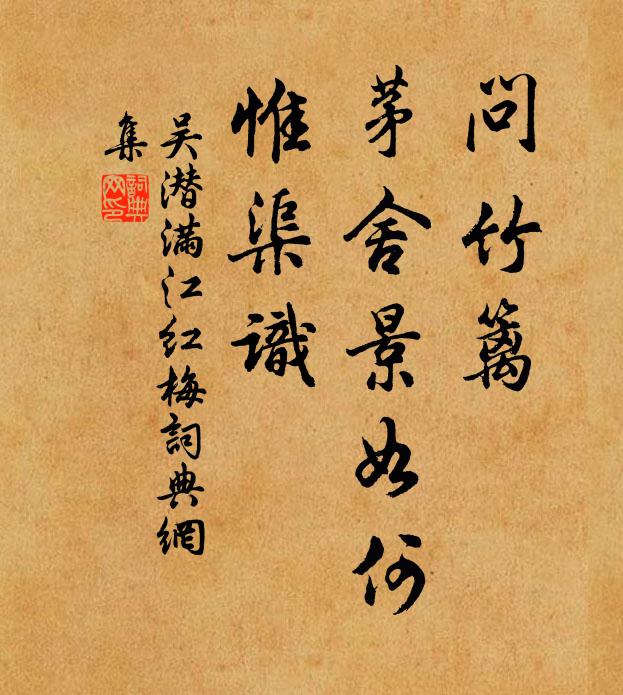 问竹篱
茅舍景如何
惟渠識
吴潜满江红梅詞典網
集
詞典网印